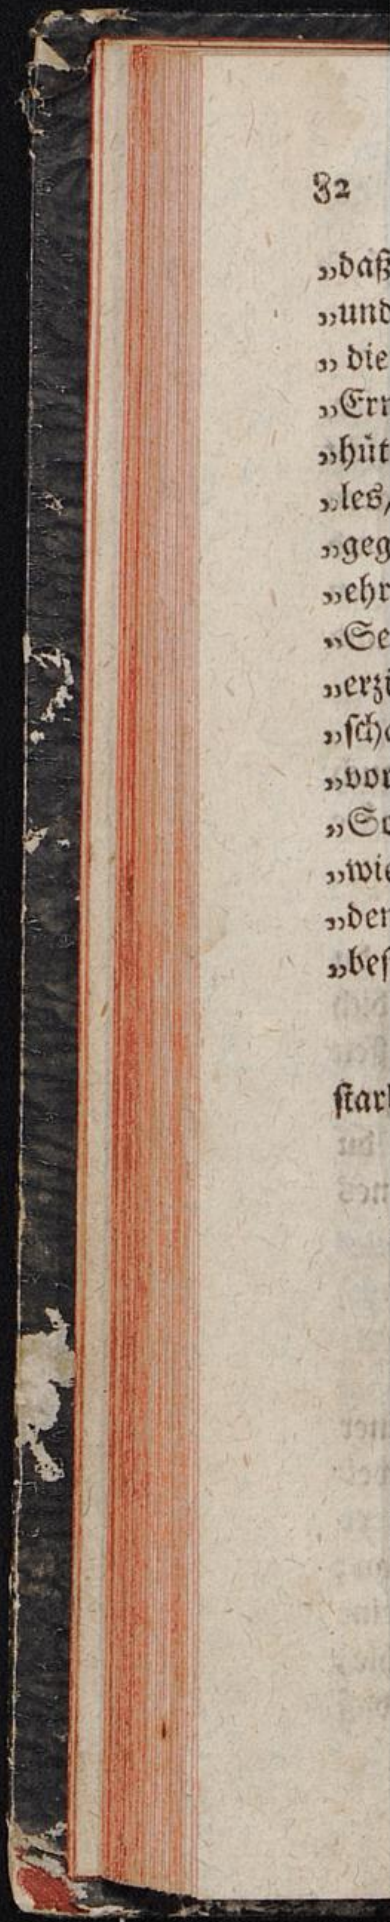 32
„daß
„und
„ die
„Ern
„hüt
„les,
„geg
„ehr
„Se
„erzi
„sch
„von
„So
„wie
„den
„bes
star